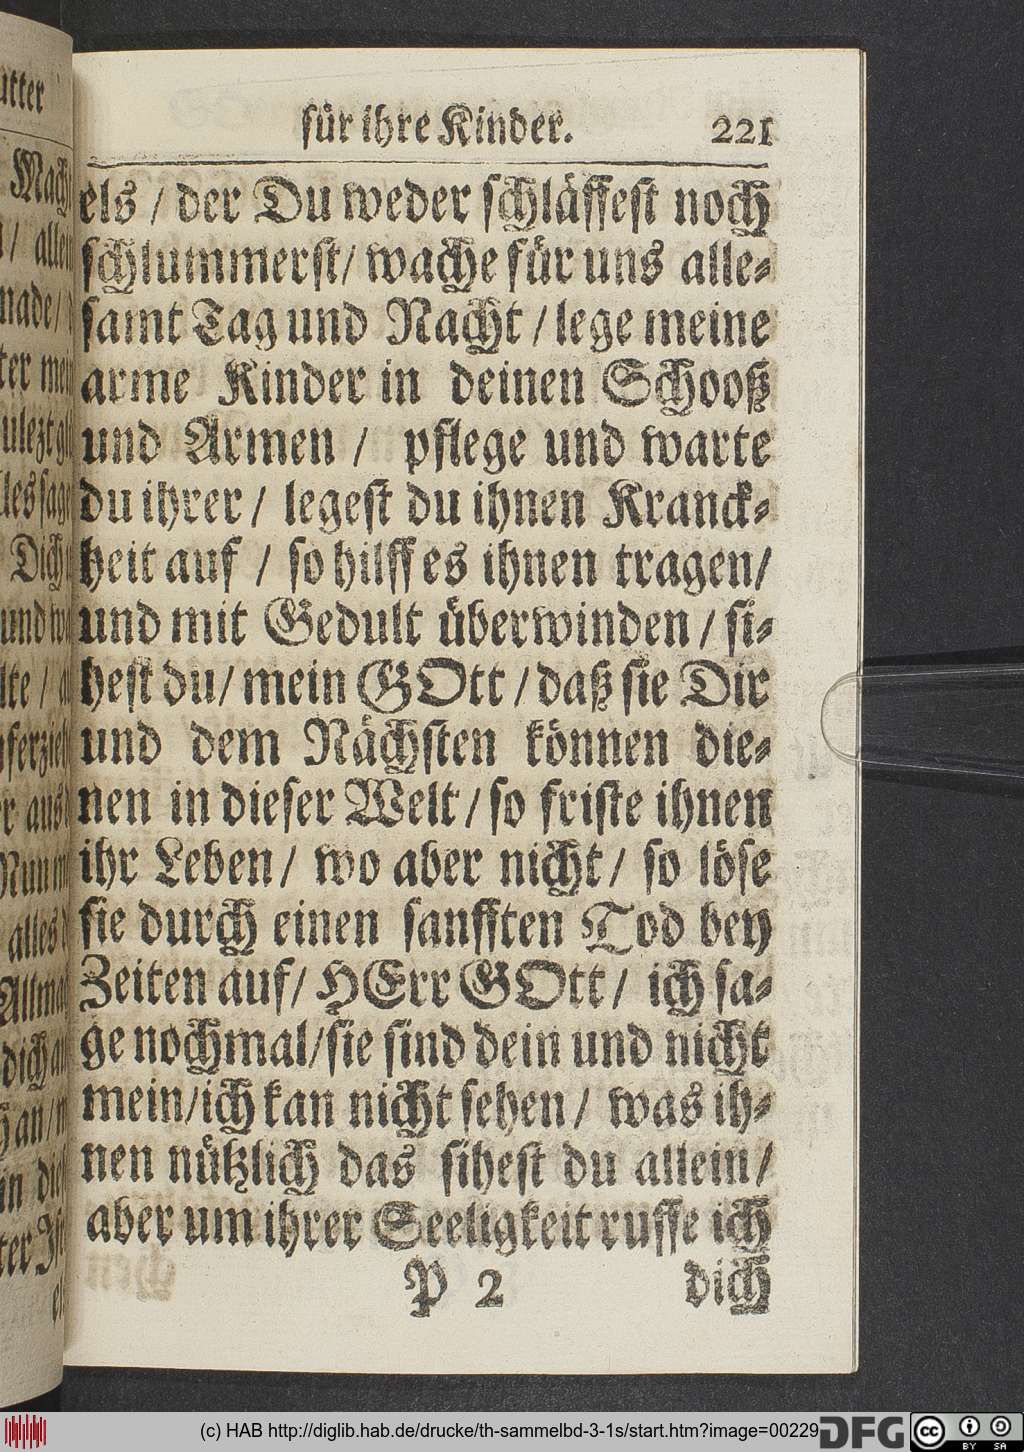 für ihre Kinder. 221
els / der Du weder schläffest noch
schlummerst/ wache für uns alle-
samt Tag und Nacht / lege meine
arme Kinder in deinen Schooß
und Armen / pflege und warte
du ihrer / legest du ihnen Kranck-
heit auf / so hilff es ihnen tragen/
und mit Gedult überwinden / si-
hest du/ mein GOtt / daß sie Dir
und dem Nächsten können die-
nen in dieser Welt / so friste ihnen
ihr Leben / wo aber nicht / so löse
sie durch einen sanfften Tod bey
Zeiten auf/ HErr GOtt / ich sa-
ge nochmal/sie sind dein und nicht
mein/ich kan nicht sehen / was ih-
nen nützlich das sihest du allein /
aber um ihrer Seeligkeit ruffe ich
P 2 dich
(c) HAB http://diglib.hab.de/drucke/th-sammelbd-3-1s/start.htm?image=00229
DFG
cc BY SA